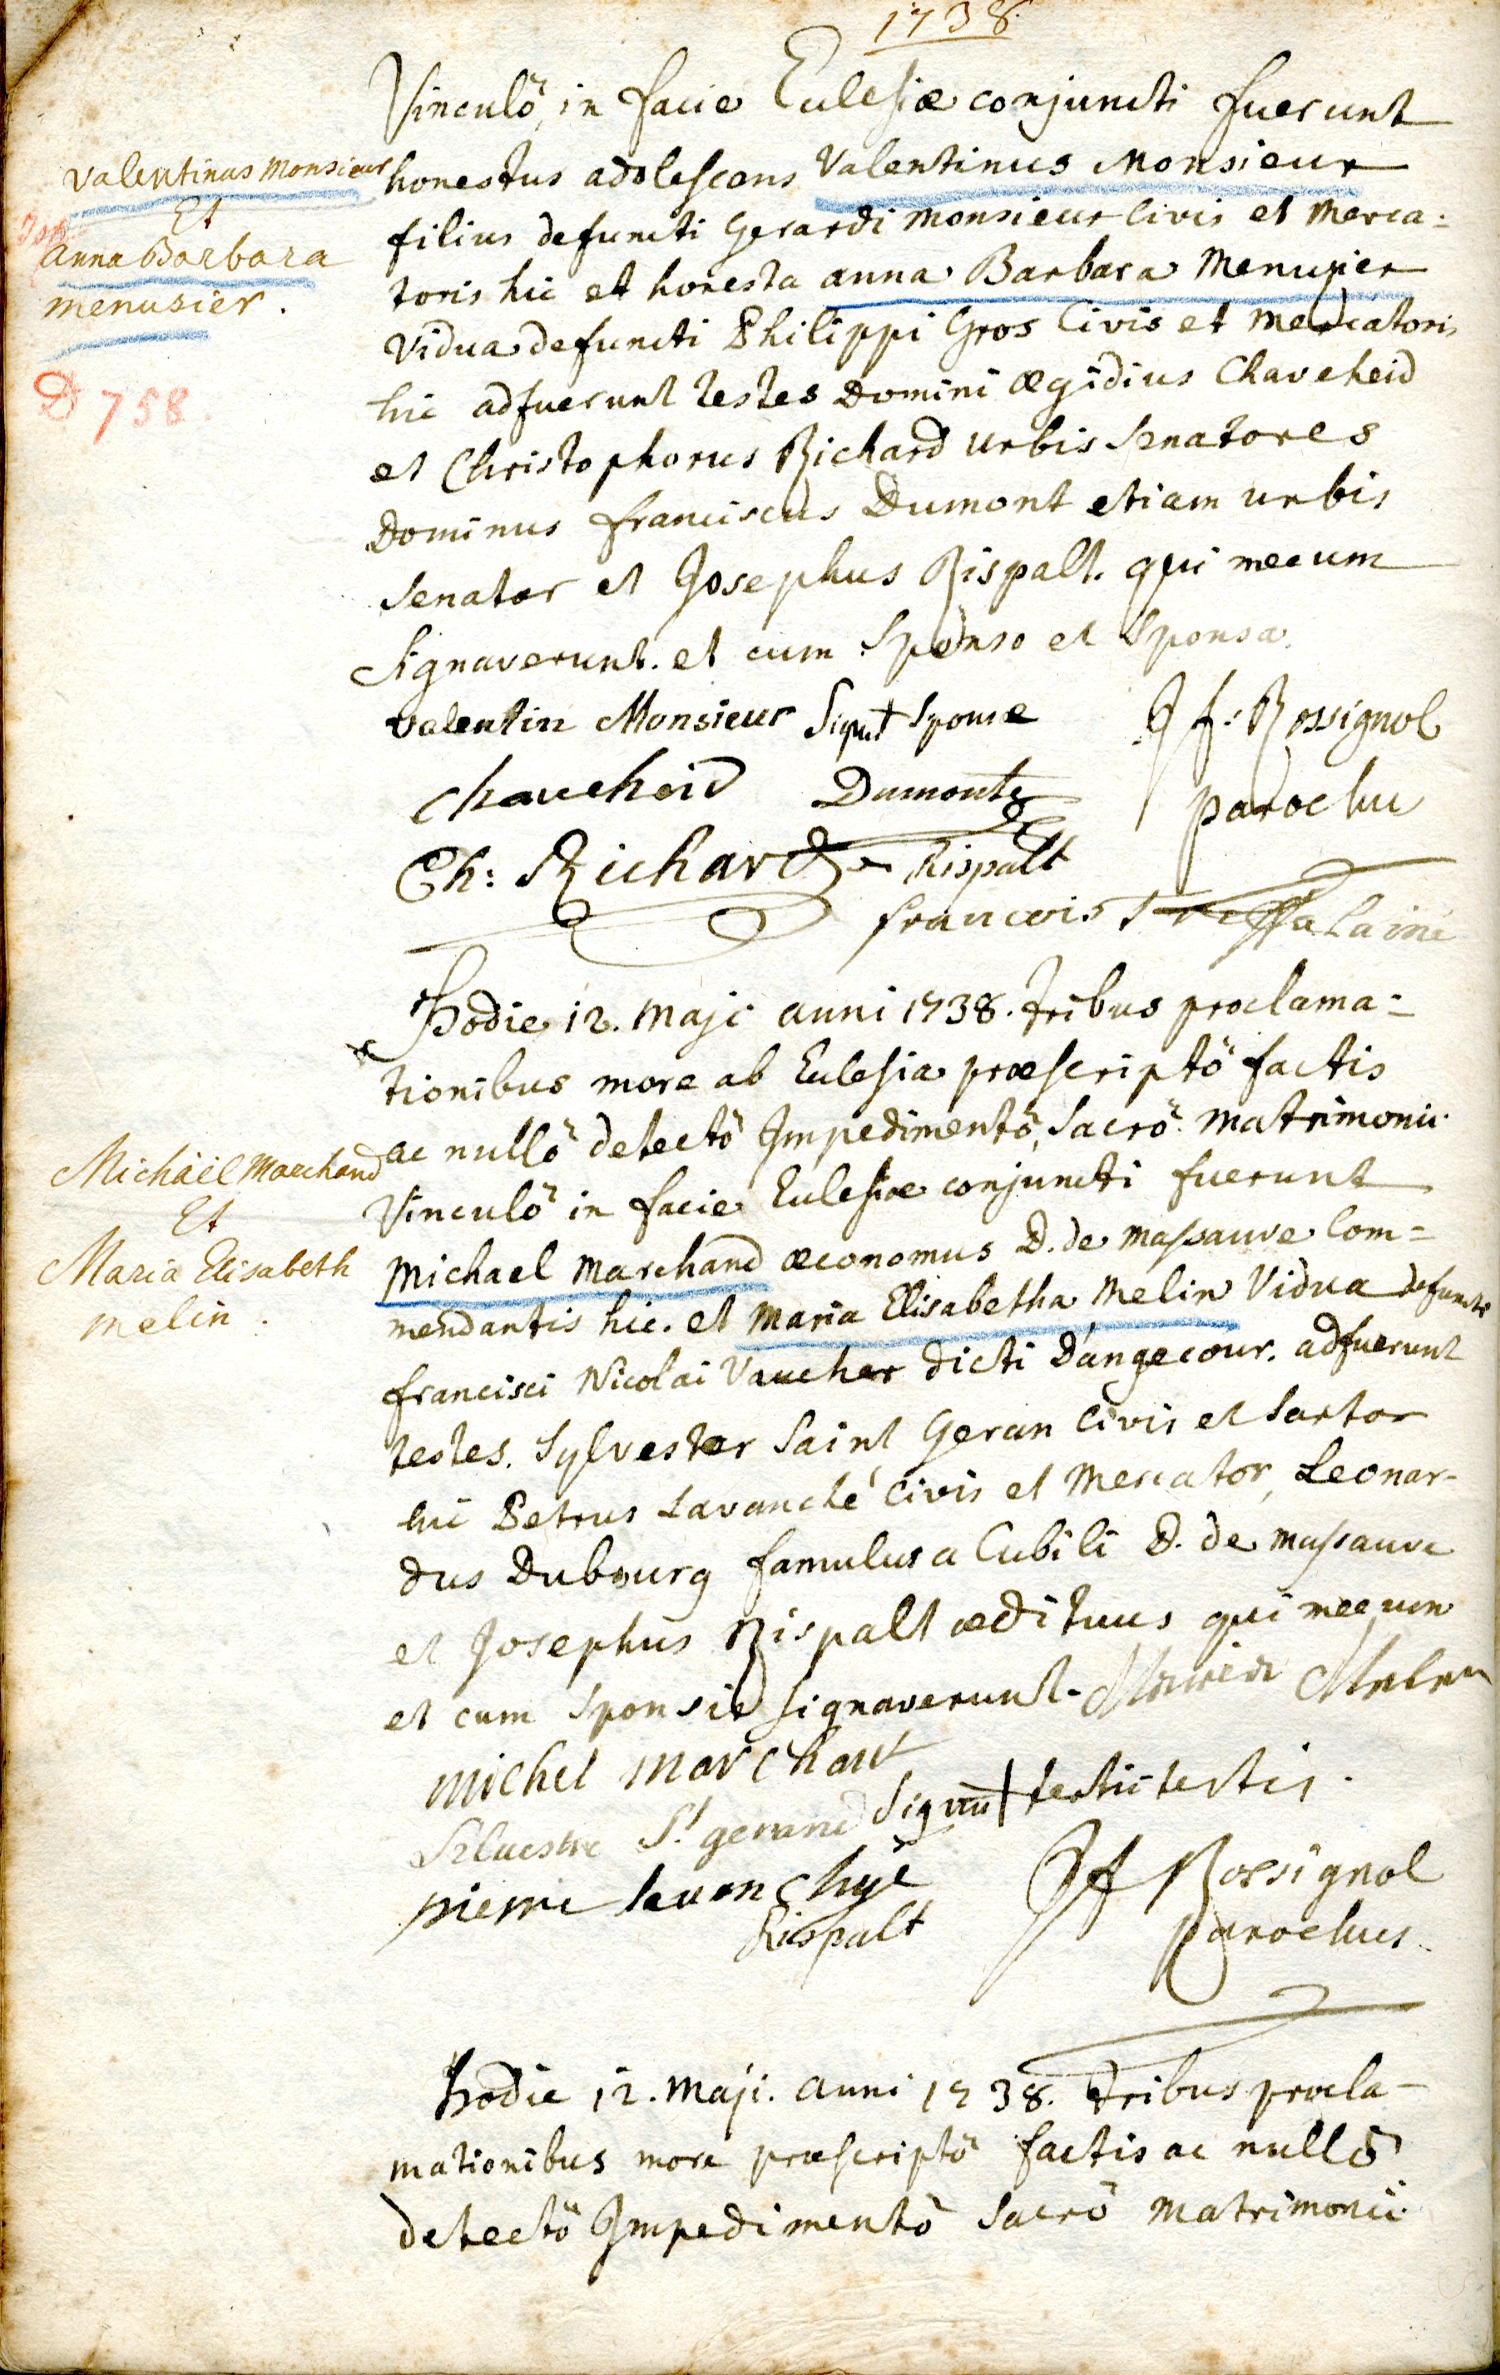 1738.
Vinculö in facie Eclesiæ conjuncti fuerunt
honestus adolescens Valentinus Monsieur
filius defuncti Gerardi Monsieur Civis et Merca:
toris hic et honesta anna Barbara Menusier
Vidua defuncti Philippi Gros Civis et Mercatoris
hic adfuerunt testes Domini Ægidius Chaveheid
et Christophorus Richard urbis Senatores
Dominus franciscus Dumont etiam urbis
Senator et Josephus Rispalt. qui mecum
signaverunt. et cum Sponso et Sponsa.
Valentinus Monsieur
Et
anna Barbara
menusier.
D 758.
valentin Monsieur Signũ + Sponsæ
J f: Rossignol
parochu
chaveheid Dumont
Ch: Richard Rispalt
francois
Hodie 12. Maji anni 1738. tribus proclama=
tionibus more ab Eclesia præscriptö factis
ac nullö detectö Impedimentö, Sacrö Matrimonii
Vinculö in facie Eclesiæ conjuncti fuerunt
Michael Marchand œconomus D. de Massauve Com=
mendantis hic. et Maria Elisabetha Melin Vidua defuncti
francisci Nicolai Vaucher dicti D'angecour. adfuerunt
testes. Sylvester Saint Geran Civis et Sartor
hic Petrus Lavanché Civis et Mercator, Leonar-
dus Dubourg famulus a Cubili D. de Massauve
et Josephus Rispalt ædituus qui mecum
et cum Sponsis signaverunt. Marie Melin
Michäel Marchand
Et
Maria Elisabeth
melin.
michel marchant
Silvestre St gerand Signũ + tertii testis.
pierre lavanchye
Rispalt
J f Rossignol
parochus
Hodie 12. Maji. anni 1738. tribus procla-
mationibus more præscriptö factis ac nullö
detectö Impedimentö Sacrö Matrimonii